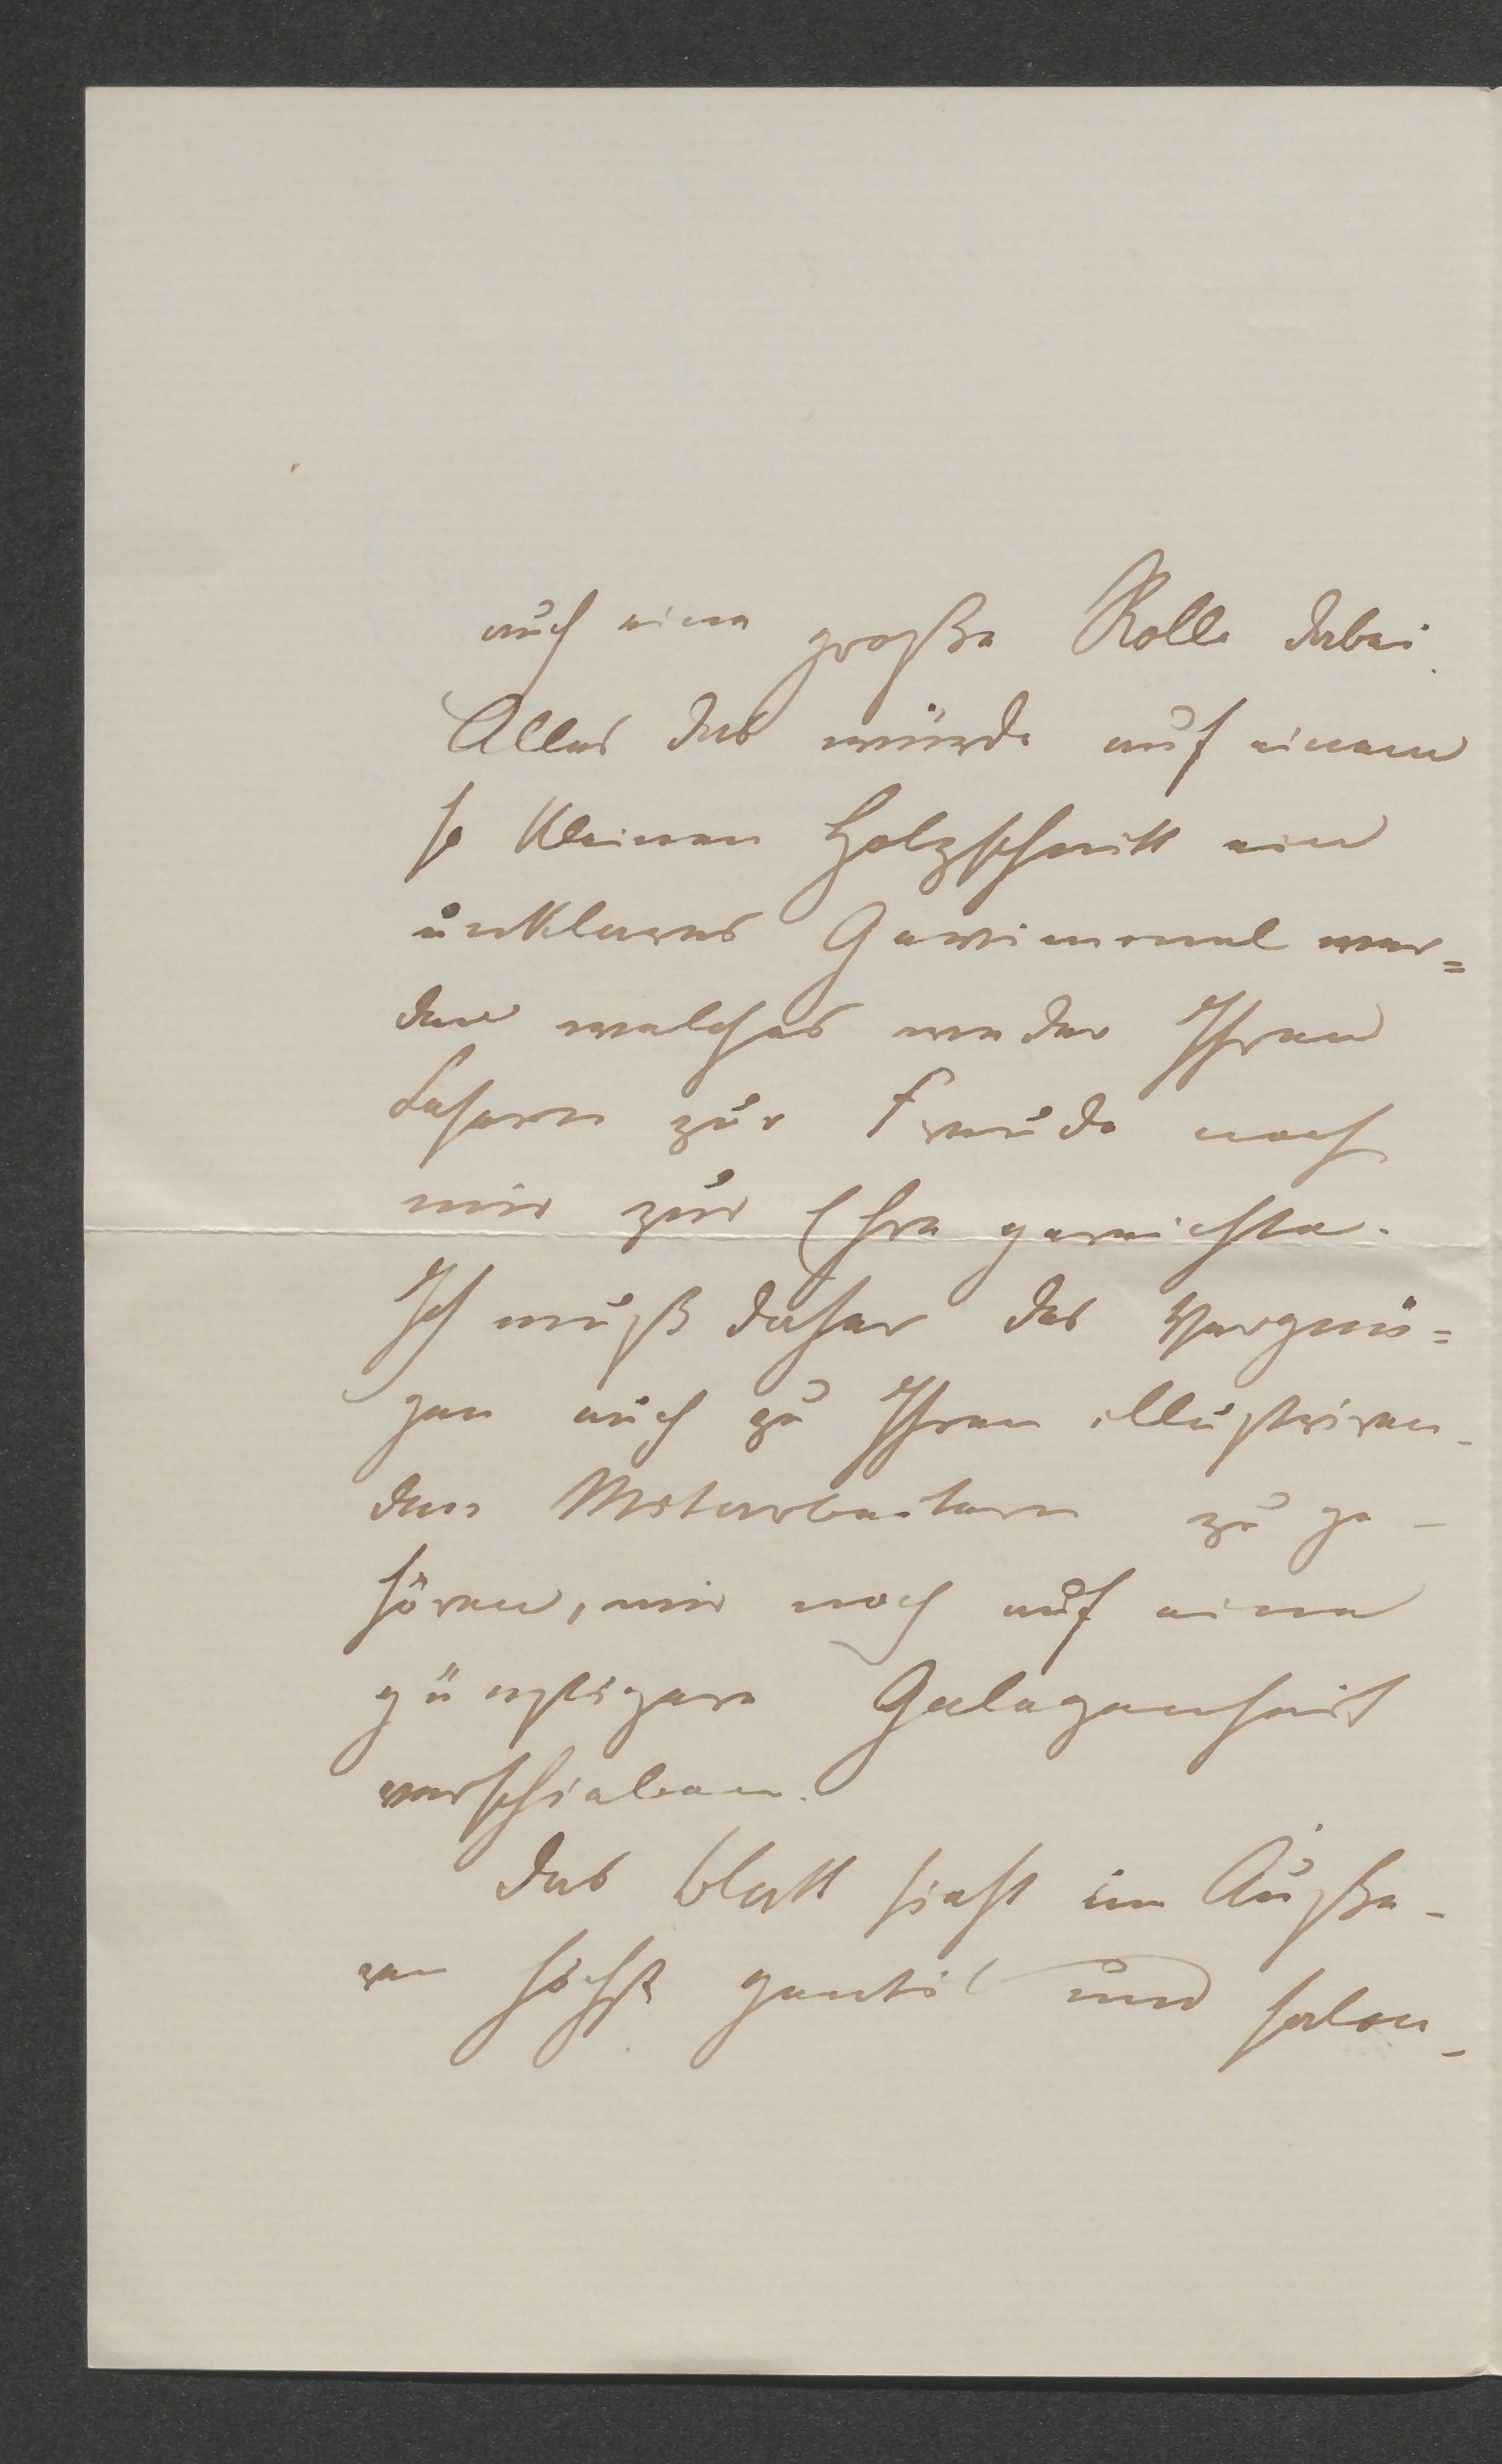 auch eine große Rolle dabei.
Alles das würde auf einem
so kleinen Holzschnitt ein
unklares Gewimmel wer=
den welches weder Ihren
Lesern zur Freude noch
mir zur Ehre gereichte.
Ich muß daher das Vergnü=
gen auch zu Ihren illustriren-
den Mitarbeitern zu ge-
hören, mir noch auf eine
günstigere Gelegenheit
verschieben.
Das Blatt sieht im Äuße-
ren höchst gentil und salon-